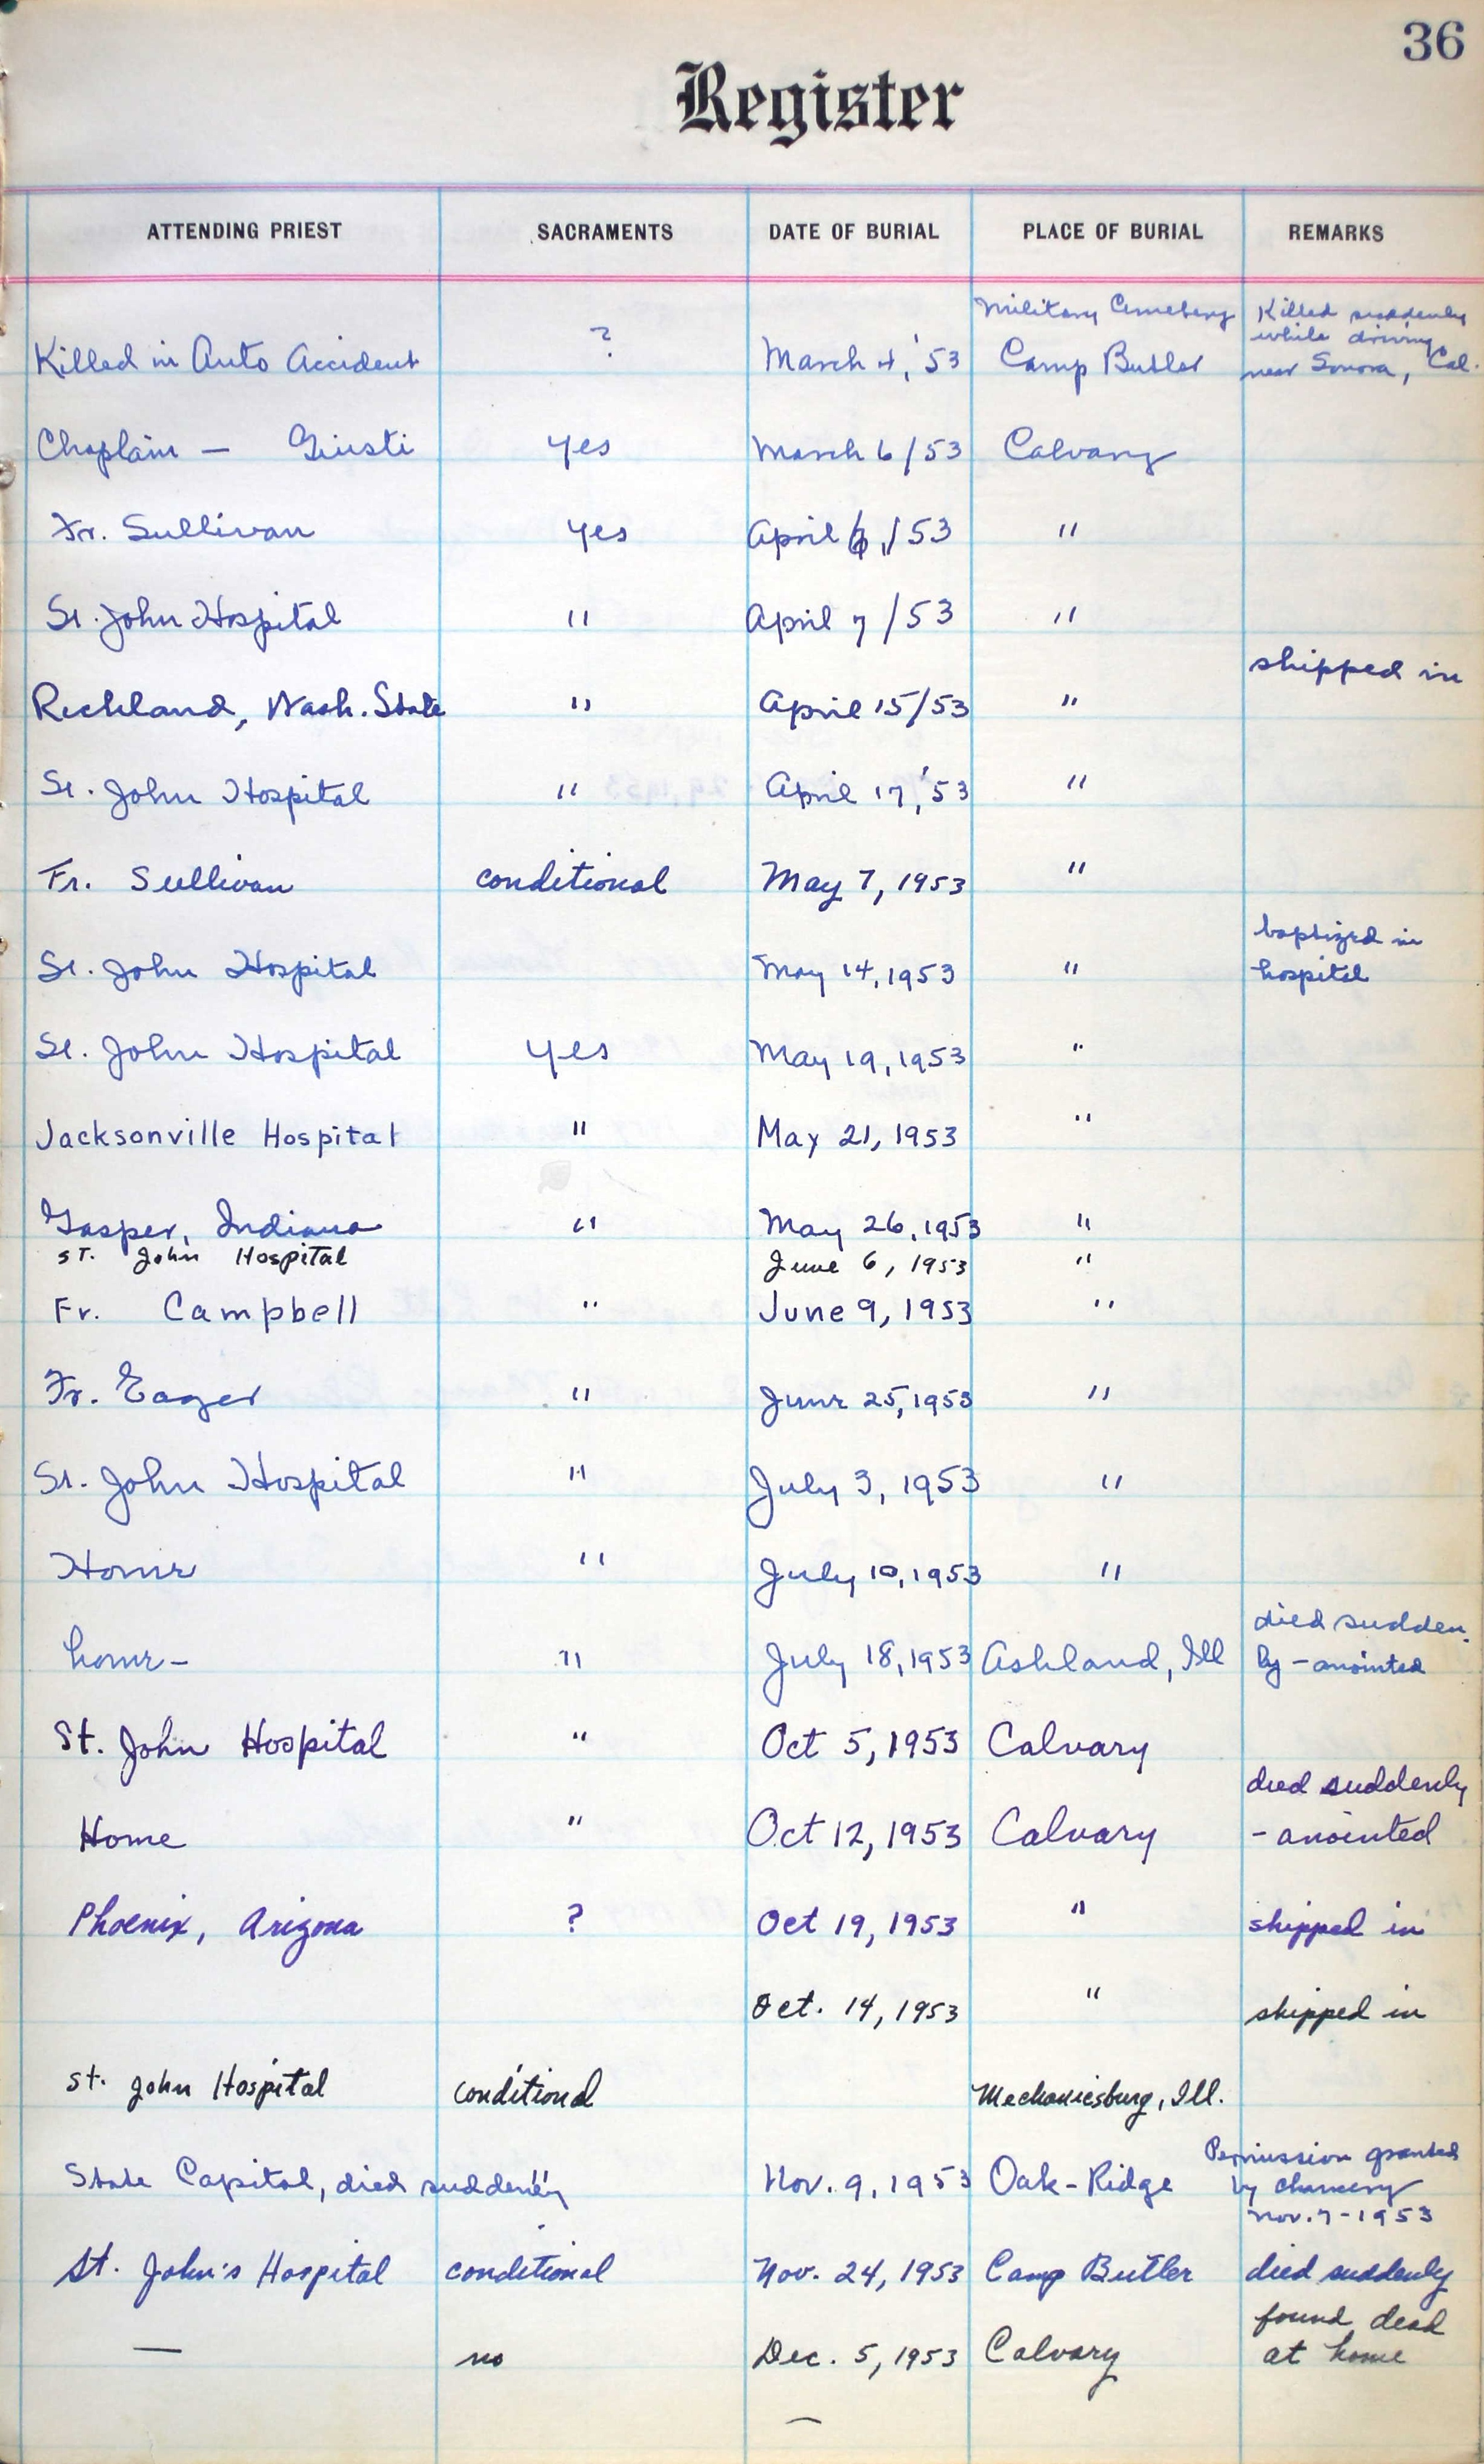 36
Register
ATTENDING PRIEST SACRAMENTS DATE OF BURIAL PLACE OF BURIAL REMARKS
Military Cemetery Killed suddenly
while driving
Killed in Auto Accident ? March 4, '53 Camp Butler near Sonora, Cal.
Chaplain — Giusti yes March 6/53 Calvary
Fr. Sullivan yes April 6,/53 "
St. John Hospital " April 7/53 "
shipped in
Richland, Wash. State " April 15/53 "
St. John Hospital " April 17, '53 "
Fr. Sullivan conditional May 7, 1953 "
baptized in
St. John Hospital May 14, 1953 " hospital
St. John Hospital yes May 19, 1953 "
Jacksonville Hospital " May 21, 1953 "
Jasper, Indiana " May 26, 1953 "
St. John Hospital June 6, 1953 "
Fr. Campbell " June 9, 1953 "
Fr. Eager " June 25, 1953 "
St. John Hospital " July 3, 1953 "
Home " July 10, 1953 "
died sudden-
home - " July 18, 1953 Ashland, Ill ly - anointed
St. John Hospital " Oct 5, 1953 Calvary
died suddenly
Home " Oct 12, 1953 Calvary - anointed
Phoenix, Arizona ? Oct 19, 1953 " shipped in
Oct. 14, 1953 " shipped in
St. John Hospital conditional Mechanicsburg, Ill.
Permission granted
State Capitol, died suddenly " Nov. 9, 1953 Oak-Ridge by chancery
Nov. 7-1953
St. John's Hospital conditional Nov. 24, 1953 Camp Butler died suddenly
found dead
— no Dec. 5, 1953 Calvary at home
—